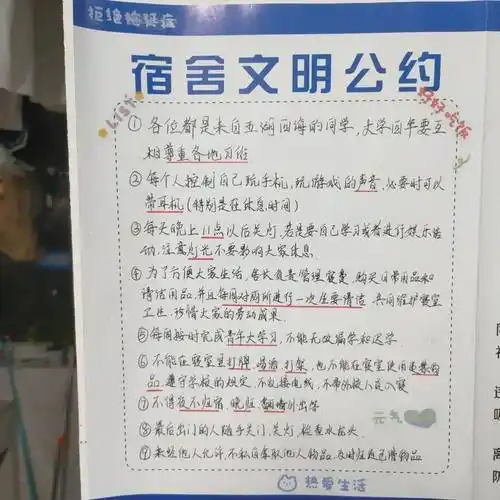 拒绝拖延症
宿舍文明公约
LIST
好好吃饭
① 各位都是来自五湖四海的同学,大学四年要互
相尊重各地习俗
② 每个人控制自己玩手机,玩游戏的声音,必要时可以
带耳机(特别是在休息时间)
③ 每天晚上11点以后关灯,若是要自己学习或者进行娱乐活
动,注意灯光不要影响大家休息.
④ 为了方便大家生活,舍长负责管理寝费,购买日常用品和
清洁用品,并且每周对厕所进行一次主要清洁,共同维护寝室
卫生,珍惜大家的劳动成果.
⑤ 每周按时完成青年大学习,不能无故漏学和迟学
⑥ 不能在寝室里打牌,喝酒,打架,也不能在寝室使用违禁物
品.遵守学校的规定,不乱接电线,不带外校人员入寝
⑦ 不得夜不归宿,晚归,翻墙外出等
⑧ 最后出门的人随手关门,关灯,检查水龙头.
⑨ 未经他人允许,不私自拿取他人物品,及时归还已借物品
元气
热爱生活